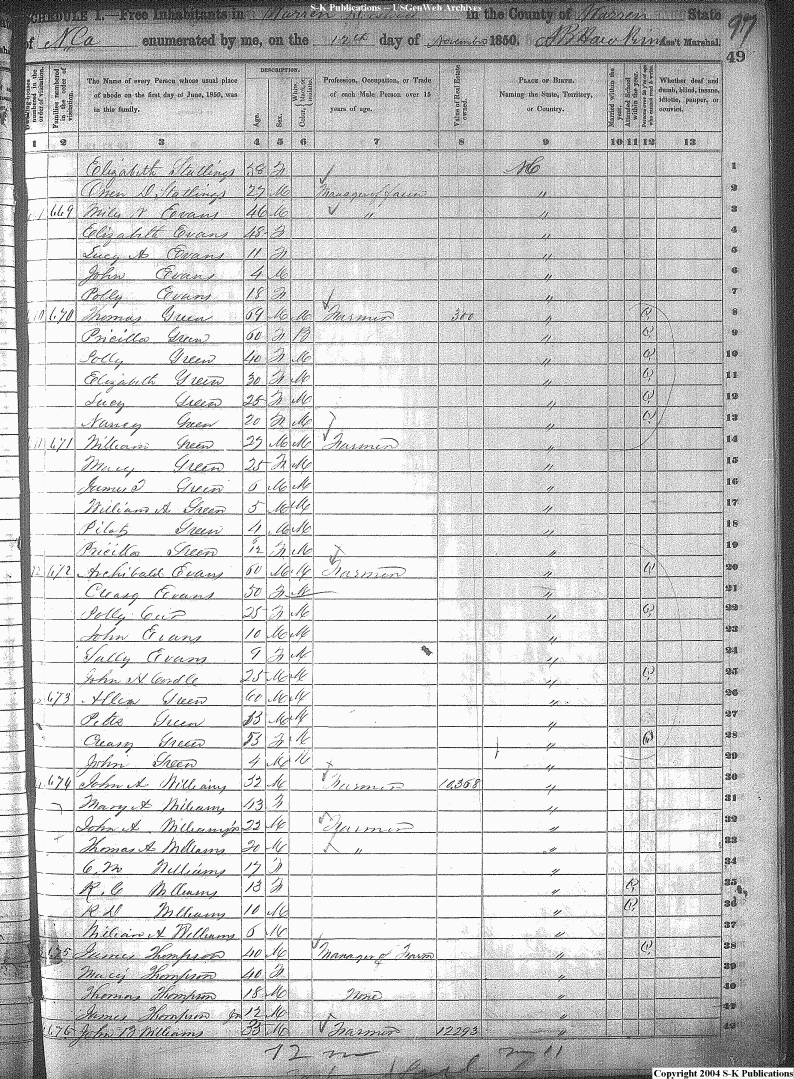 S-K Publications -- USGenWeb Archives
SCHEDULE I.—Free Inhabitants in Warren in the County of Warren State
of N. Ca enumerated by me, on the 12th day of November 1850. Ass't Marshal.
97
49
Dwelling-houses numbered in the order of visitation.
Families numbered in the order of visitation.
The Name of every Person whose usual place of abode on the first day of June, 1850, was in this family.
DESCRIPTION.
Age.
Sex.
Color, White, black, or mulatto.
Profession, Occupation, or Trade of each Male Person over 15 years of age.
Value of Real Estate owned.
PLACE OF BIRTH. Naming the State, Territory, or Country.
Married within the year.
Attended School within the year.
Persons over 20 y'rs of age who cannot read & write.
Whether deaf and dumb, blind, insane, idiotic, pauper, or convict.
1 2 3 4 5 6 7 8 9 10 11 12 13
Elizabeth Stallings 58 F NC 1
Owen D. Stallings 27 M Manager of farm " 2
669 Miles Evans 46 M " " 3
Elizabeth Evans 48 F " 4
Lucy A Evans 11 F " 5
John Evans 4 M " 6
Polly Evans 18 F " 7
670 Thomas Green 69 M M Farmer 300 " 8
Pricilla Green 60 F B " 9
Polly Green 40 F M " 10
Elizabeth Green 30 F M " 11
Lucy Green 28 F M " 12
Nancy Green 20 F M " 13
671 William Green 27 M M Farmer " 14
Mary Green 25 F M " 15
James T Green 6 M M " 16
William A Green 5 M M " 17
Green 4 M M " 18
Pricilla Green F M " 19
672 Archibald Evans 60 M M Farmer " 20
Creasy Evans 50 F M " 21
Polly 25 F M " 22
John Evans 10 M M " 23
Sally Evans 9 F M " 24
John A Cordle 25 M M " 25
673 Allen Green 60 M M " 26
Green M M " 27
Creasy Green 53 F M " 28
John Green 4 M M " 29
674 John A Williams 52 M Farmer 10,358 " 30
Mary A Williams 43 F " 31
John A. Williams jr 22 M Farmer " 32
Thomas A Williams 20 M " " 33
C. M Williams 17 F 34
R. C Williams 13 F " 35
R D Williams 10 M " 36
William A Williams 6 M 37
675 James Thompson 40 M Manager of Farm " 38
Macy Thompson 40 F " 39
Thomas Thompson 18 M None " 40
James Thompson Jn 12 M " 41
676 John B Williams 35 M Farmer 12293 " 42
72 m
Copyright 2004 S-K Publications